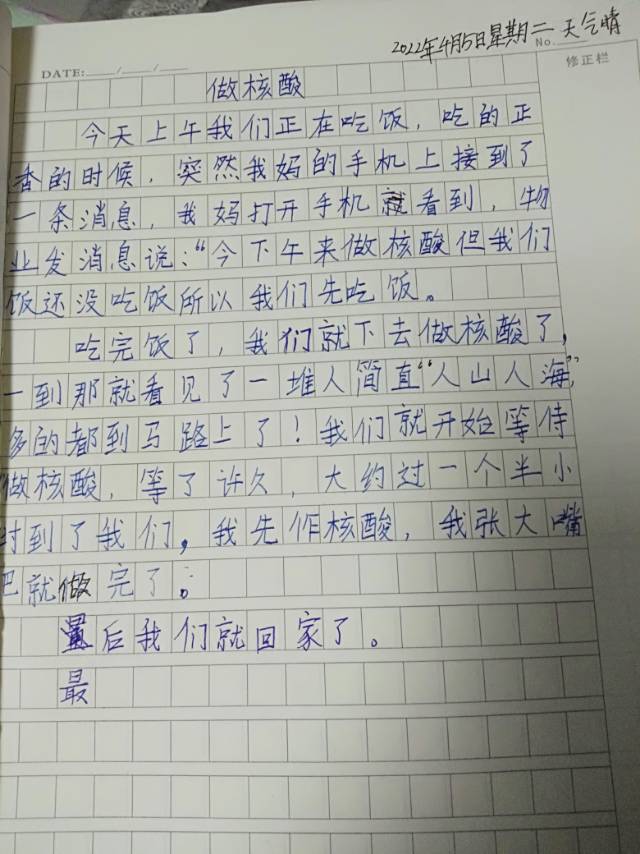 2022年4月5日星期二 天气晴
DATE: / / No.
修正栏
做核酸
今天上午我们正在吃饭，吃的正
香的时候，突然我妈的手机上接到了
一条消息，我妈打开手机就看到，物
业发消息说：“今下午来做核酸但我们
饭还没吃饭所以我们先吃饭。
吃完饭了，我们就下去做核酸了，
一到那就看见了一堆人简直“人山人海”
多的都到马路上了！我们就开始等侍
做核酸，等了许久，大约过一个半小
时到了我们，我先作核酸，我张大嘴
巴就做完了。
最后我们就回家了。
最